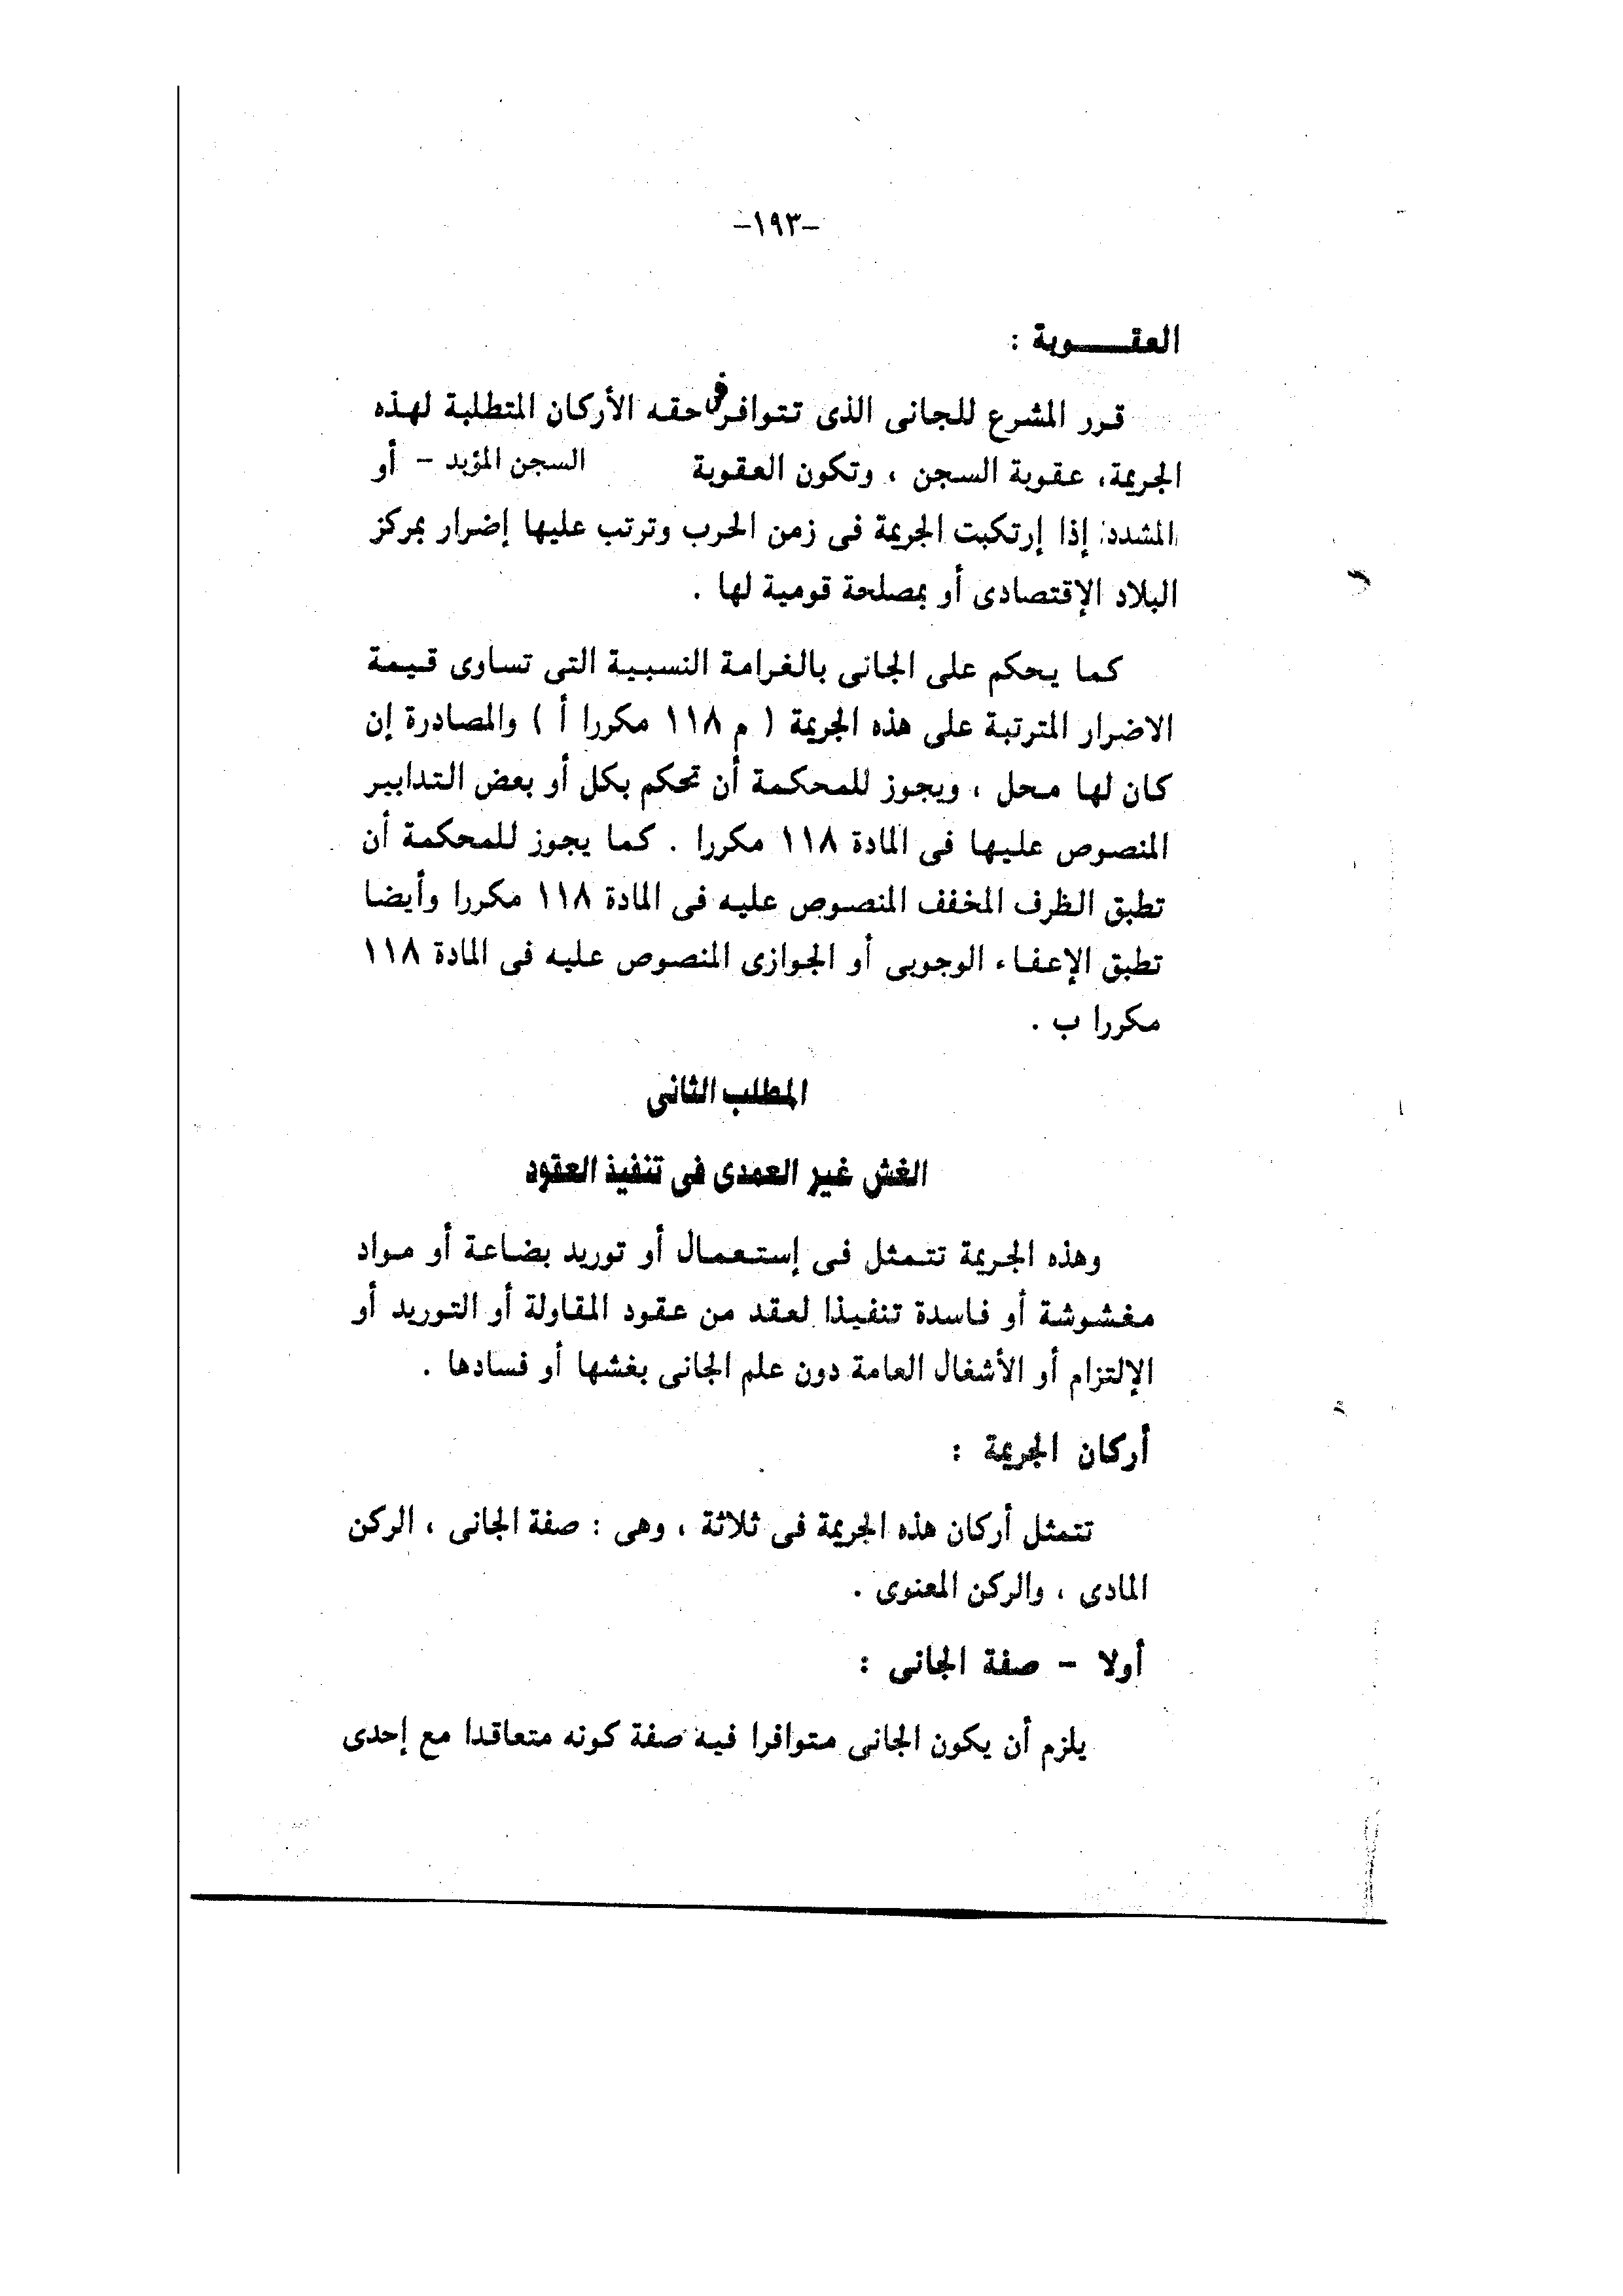 -١٩٣-
العقـــــوبة :
قرر المشرع للجانى الذى تتوافر فى حقه الأركان المتطلبة لهذه
الجريمة، عقوبة السجن ، وتكون العقوبة السجن المؤبد - أو
المشدد إذا إرتكبت الجريمة فى زمن الحرب وترتب عليها إضرار بمركز
البلاد الإقتصادى أو بمصلحة قومية لها .
كما يحكم على الجانى بالغرامة النسبية التى تساوى قيمة
الاضرار المترتبة على هذه الجريمة ( م ١١٨ مكررا أ ) والمصادرة إن
كان لها محل ، ويجوز للمحكمة أن تحكم بكل أو بعض التدابير
المنصوص عليها فى المادة ١١٨ مكررا . كما يجوز للمحكمة أن
تطبق الظرف المخفف المنصوص عليه فى المادة ١١٨ مكررا وأيضا
تطبق الإعفاء الوجوبى أو الجوازى المنصوص عليه فى المادة ١١٨
مكررا ب .
المطلب الثانى
الغش غير العمدى فى تنفيذ العقود
وهذه الجريمة تتمثل فى إستعمال أو توريد بضاعة أو مواد
مغشوشة أو فاسدة تنفيذا لعقد من عقود المقاولة أو التوريد أو
الإلتزام أو الأشغال العامة دون علم الجانى بغشها أو فسادها .
أركان الجريمة :
تتمثل أركان هذه الجريمة فى ثلاثة ، وهى : صفة الجانى ، الركن
المادى ، والركن المعنوى .
أولا - صفة الجانى :
يلزم أن يكون الجانى متوافرا فيه صفة كونه متعاقدا مع إحدى